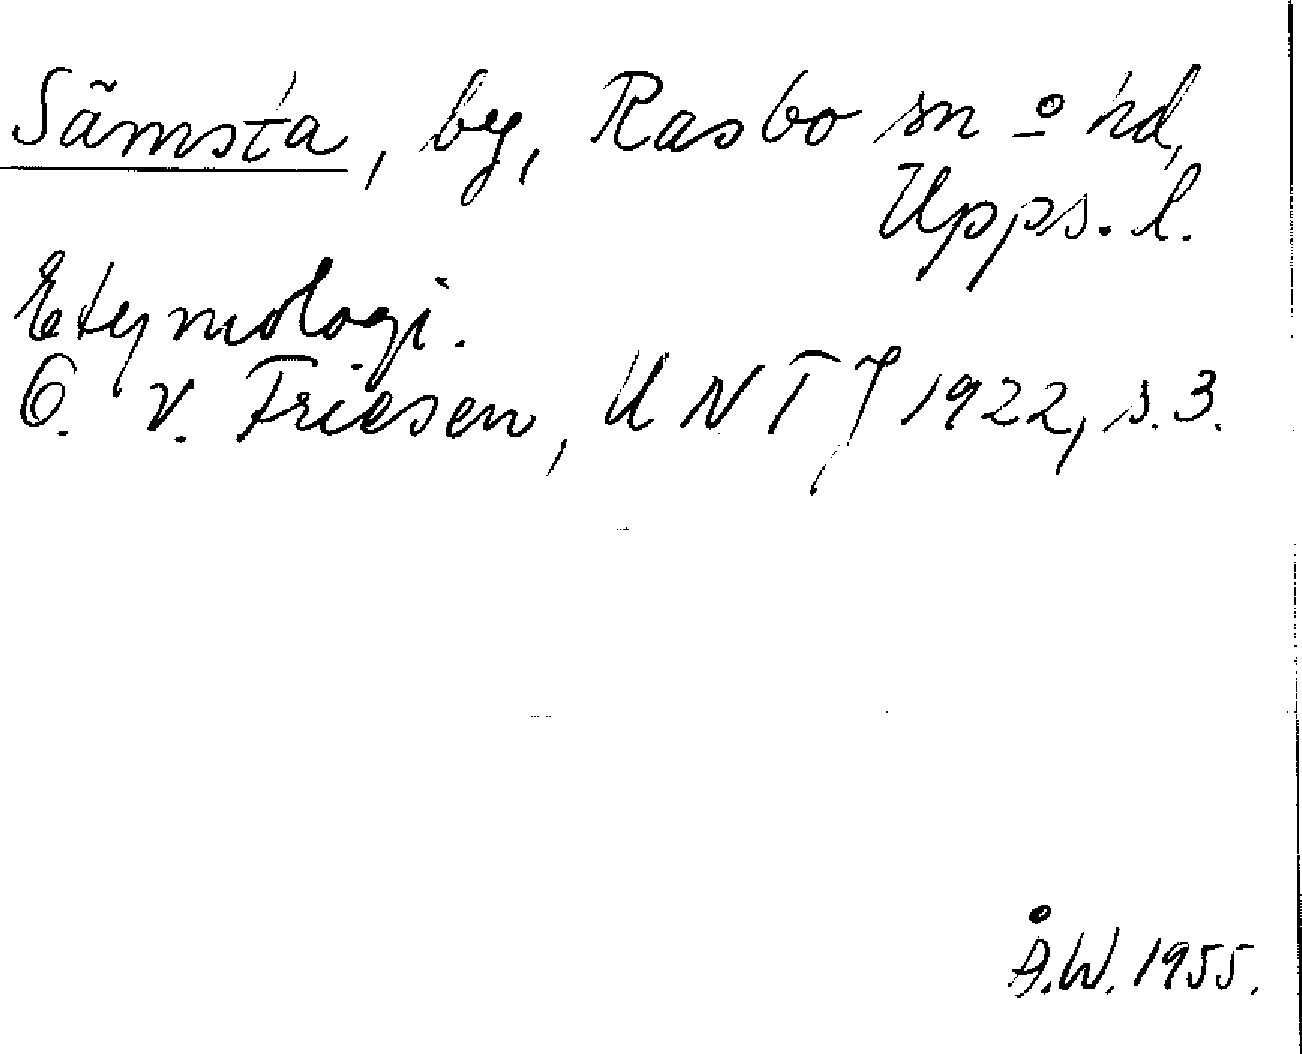 Sämsta, by, Rasbo sn o hd,
Upps. l.
Etymologi.
O. v. Friesen, UNT 1922, s. 3.
Å.W. 1955.